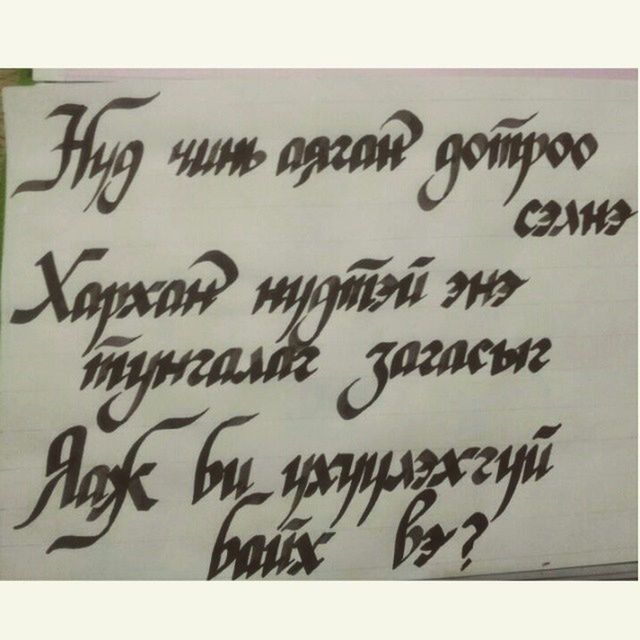 Нуд чинь аяганд дотроо
сэлнэ
Хархан нудтэй энэ
тунгалаг загасыг
Яаж би ухуулэхгуй
байх вэ?